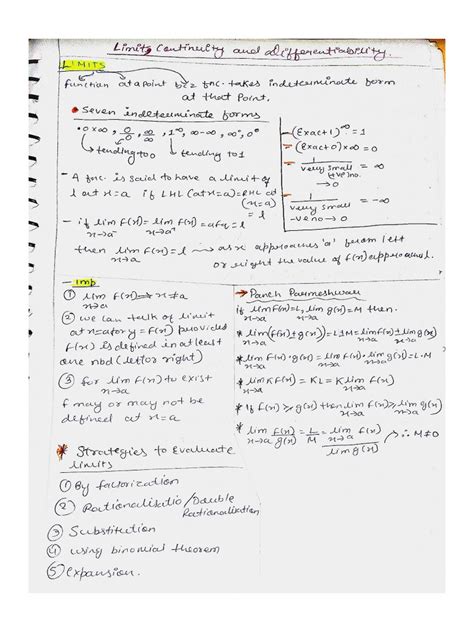 Limits, Continuity and Differentiability.
LIMITS
function at a point bcz fnc. takes indeterminate form
at that Point.
* Seven indeterminate forms
• 0×∞, 0/0, ∞/∞, 1^∞, ∞-∞, ∞°, 0°
tending to 0
tending to 1
(Exact 1)^∞ = 1
(Exact 0)×∞ = 0
1/very small (+ve) no.
→0
1/very small -ve no → 0
- A fnc. is said to have a limit of
l at x=a if LHL (at x=a) = RHL at
(x=a)
= l
- if lim x→a⁻ f(x) = lim x→a⁺ f(x) = l
then lim x→a f(x) = l → as x approaches 'a' from left
or right the value of f(x) approaches l.
- imp
① lim x→a f(x) ⇒ x≠a
② we can talk of limit
at x=a for y=f(x) provided
f(x) is defined in atleast
one nbd (left or right)
③ for lim x→a f(x) to exist
f may or may not be
defined at x=a
→ Panch Parmeshwar
if lim x→a f(x)=L, lim x→a g(x)=M then.
* lim x→a (f(x)±g(x)) = L±M = lim x→a f(x) ± lim x→a g(x)
* lim x→a f(x)·g(x) = lim x→a f(x)·lim x→a g(x) = L·M
* lim x→a Kf(x) = KL = K lim x→a f(x)
* If f(x) ≥ g(x) then lim x→a f(x) ≥ lim x→a g(x)
* lim x→a f(x)/g(x) = L/M = lim x→a f(x) / lim x→a g(x) ∴ M≠0
* Strategies to Evaluate
limits
① By factorization
② Rationalisatio /Double
Rationalisation
③ Substitution
④ using binomial theorem
⑤ expansion.